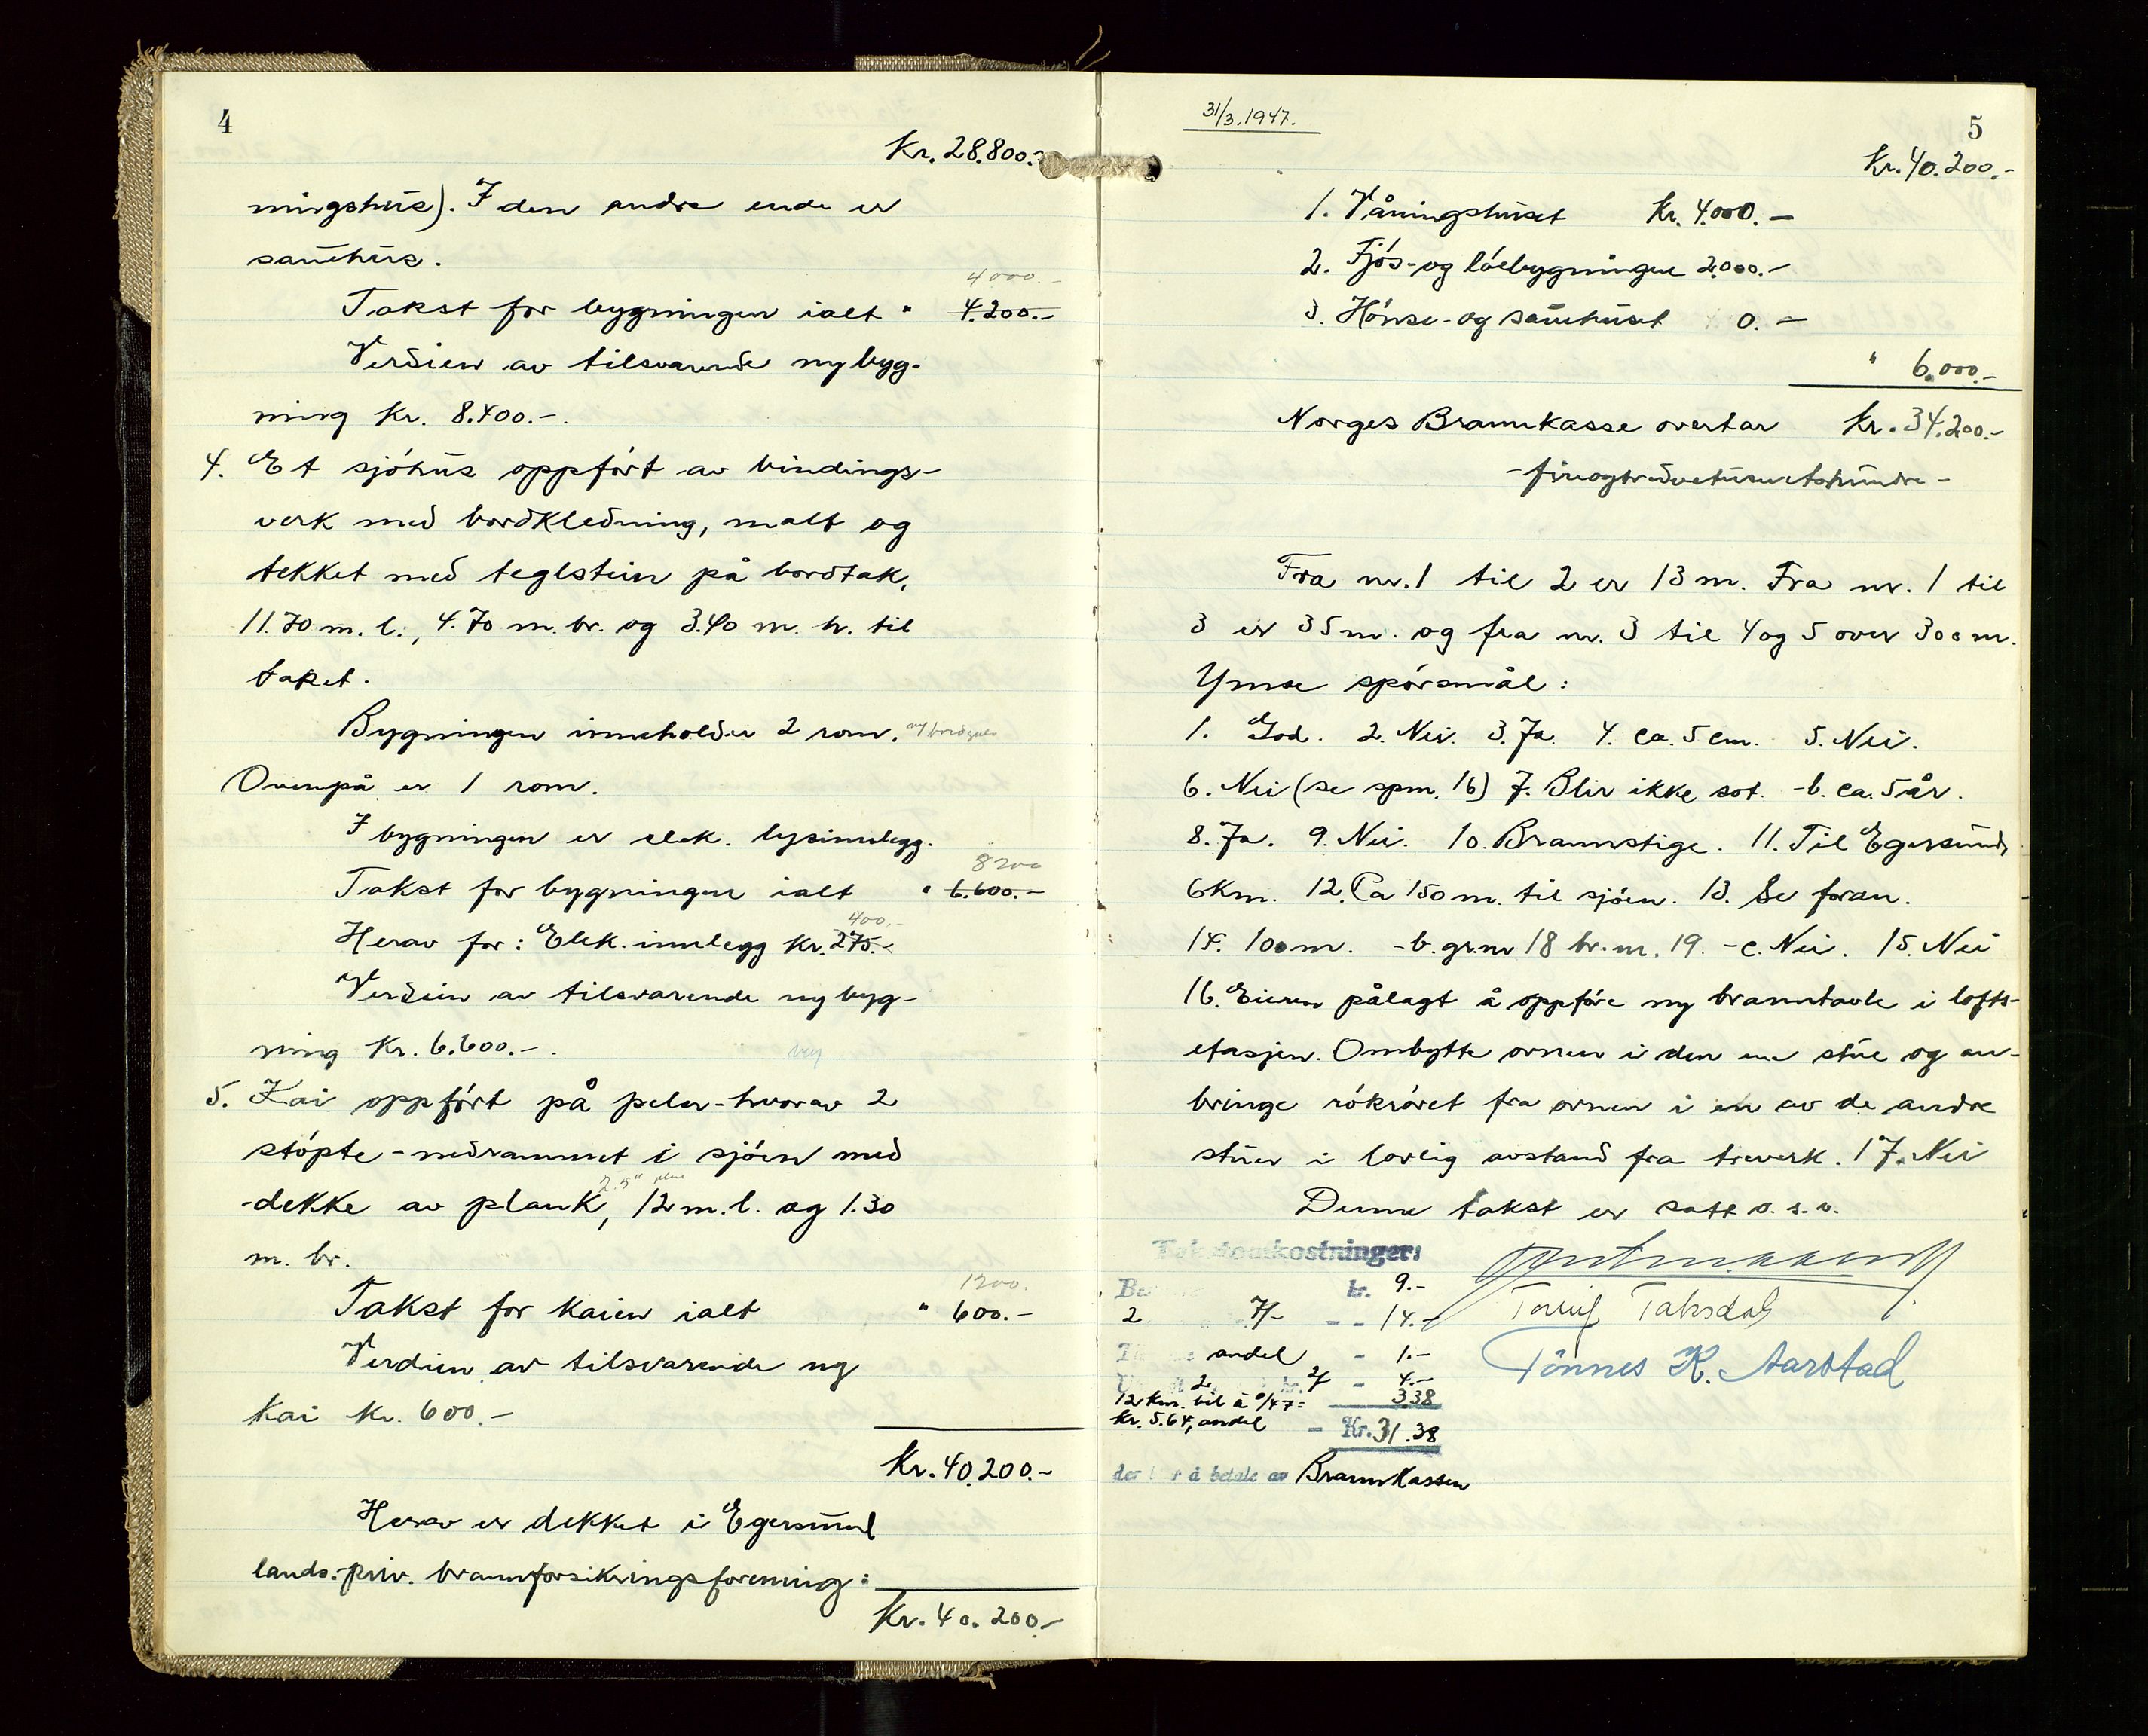 4
Kr. 28.800.-
ningshus). I den andre ende er
sauehus.
4000.-
Takst for bygningen ialt " 4.200.-
Verdien av tilsvarende ny byg-
ning Kr. 8.400.-.
4. Et sjöhus oppfört av bindings-
verk med bordkledning, malt og
tekket med teglstein på bordtak,
11.70 m. l., 4.70 m. br. og 3.40 m. h. til
taket.
Bygningen inneholder 2 rom.
Ovenpå er 1 rom.
I bygningen er elek. lysinnlegg.
8200
Takst for bygningen ialt " 6.600.-
400.-
Herav for: Elek. innlegg Kr. 275.-
Verdien av tilsvarende ny byg-
ning Kr. 6.600.-.
5. Kai oppfört på peler - hvorav 2
stöpte - nedrammet i sjöen med
2.5"
dekke av plank, 12 m. l. og 1.30
m. br.
1200.
Takst for kaien ialt " 600.-
Verdien av tilsvarende ny
kai Kr. 600.-
Kr. 40.200.-
Herav er dekket i Egersund
lands. priv. brannforsikringsforening:
Kr. 40.200.-
31/3.1947.
5
Kr. 40.200.-
1. Våningshuset Kr. 4.000.-
2. Fjös- og löebygningen 2.000.-
3. Hönse- og sauehuset 0.-
" 6.000.-
Norges Brannkasse overtar Kr. 34.200.-
- fireogtredvetusentohundre -
Fra nr. 1 til 2 er 13 m. Fra nr. 1 til
3 er 35 m. og fra nr. 3 til 4 og 5 over 300 m.
Ymse spörsmål:
1. God. 2. Nei. 3. Ja. 4. ca. 5 cm. 5. Nei.
6. Nei (se spm. 16) 7. Blir ikke sot. - b. ca. 5 år.
8. Ja. 9. Nei. 10. Brannstige. 11. Til Egersund
6 Km. 12. Ca 150 m. til sjöen. 13. Se foran.
14. 100 m. - b. gr. nr 18 br. nr. 19. - c. Nei. 15. Nei
16. Eieren pålagt å oppföre ny branntavle i lofts-
etasjen. Ombytte ovnen i den ene stue og an-
bringe rökröret fra ovnen i en av de andre
stuer i lovlig avstand fra treverk. 17. Nei
Denne takst er satt o. s. v.
Takstomkostninger:
kr. 9.-
2 7/- - - 14.-
Torleif Taksdal
andel - 1.-
Tönnes K. Aarstad
2 kr. 2/ - 4.-
12 km. bil à 0/47 = 3.38
kr. 5.64, andel - Kr. 31.38
der å betale av Brannkassen